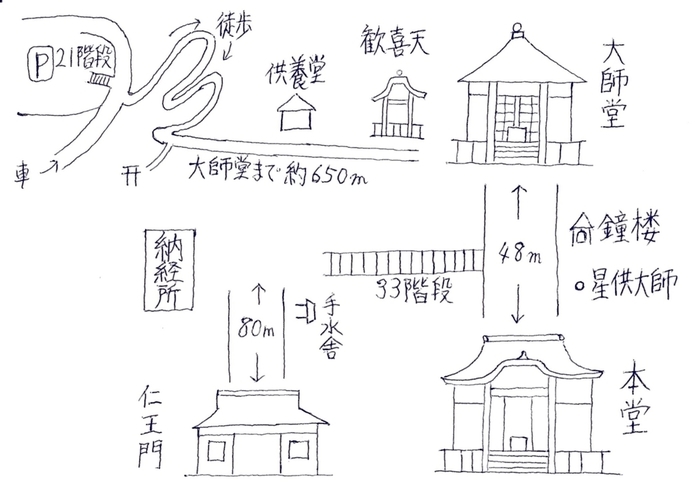 徒歩
P
21階段
供養堂
歓喜天
大師堂
車
大師堂まで約650m
納経所
33階段
48m
鐘楼
星供大師
80m
手水舎
仁王門
本堂